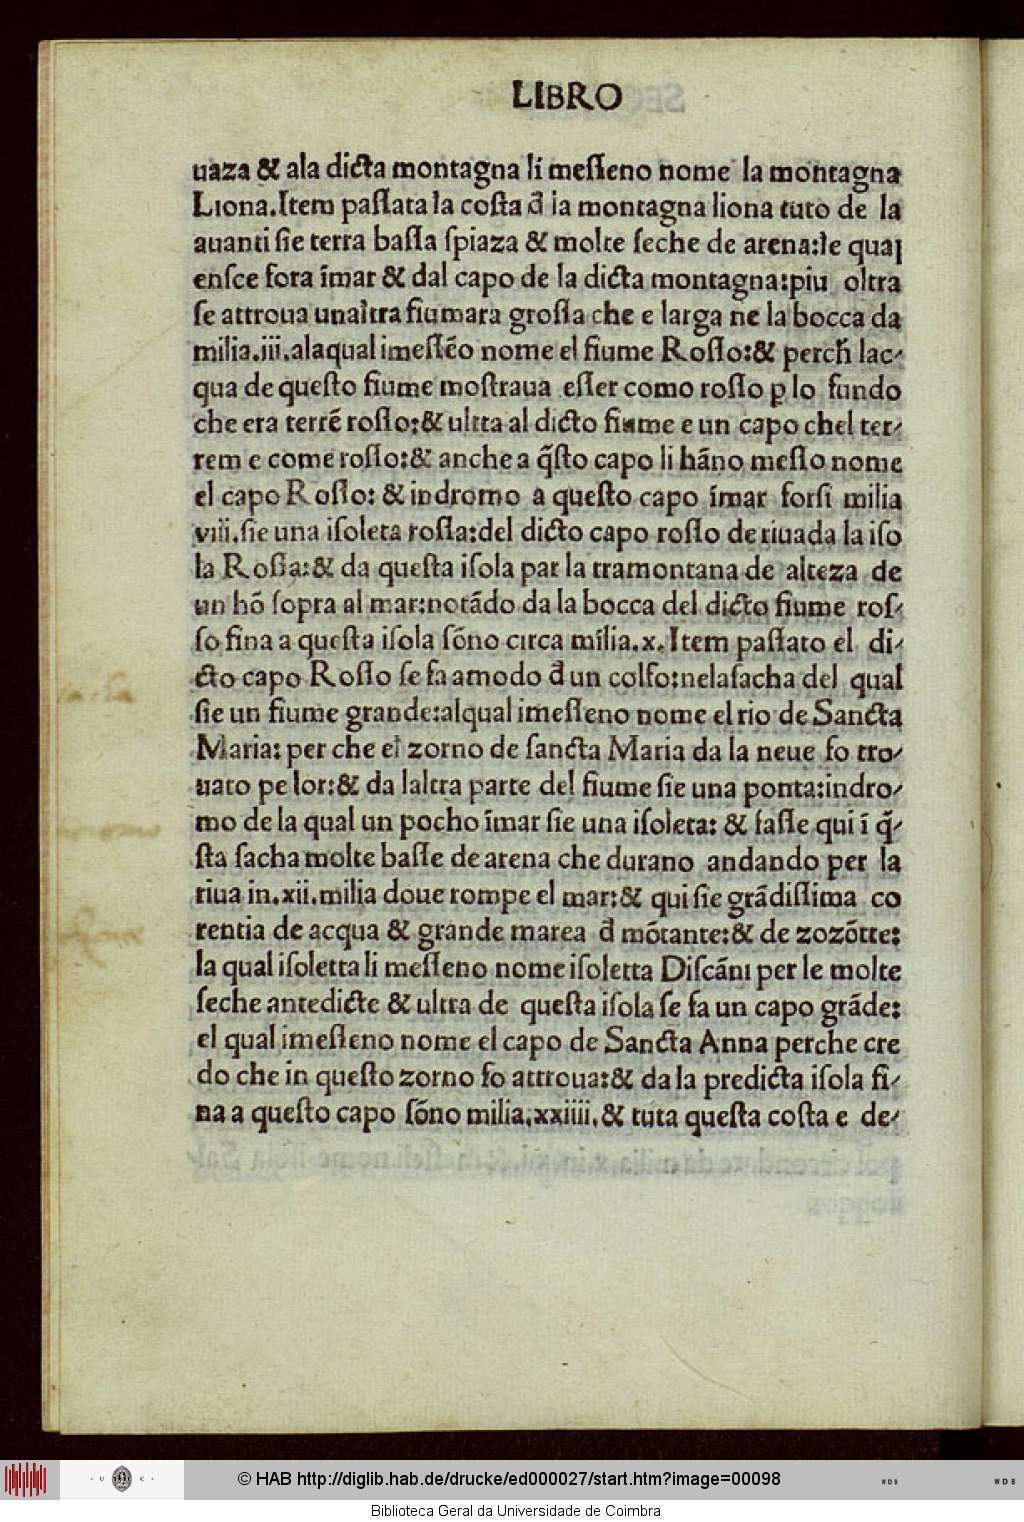 LIBRO
uaza & ala dicta montagna li messeno nome la montagna
Liona.Item passata la costa d̄ la montagna liona tuto de la
auanti sie terra bassa spiaza & molte seche de arena:le quaj
ensce fora īmar & dal capo de la dicta montagna:piu oltra
se attroua unaltra fiumara grossa che e larga ne la bocca da
milia.iii.alaqual imessēo nome el fiume Rosso:& perch̄ lac-
qua de questo fiume mostraua esser como rosso ꝑ lo fundo
che era terrē rosso:& ultta al dicto fiume e un capo chel ter-
rem e come rosso:& anche a q̄sto capo li hāno messo nome
el capo Rosso: & indromo a questo capo īmar forsi milia
viii.sie una isoleta rossa:del dicto capo rosso de riuada la iso
la Rossa:& da questa isola par la tramontana de alteza de
un hō sopra al mar:notādo da la bocca del dicto fiume ros-
so fina a questa isola sōno circa milia.x.Item passato el di-
cto capo Rosso se fa amodo d̄ un colfo:nelafacha del qual
sie un fiume grande:alqual imesseno nome el rio de Sancta
Maria: per che el zorno de sancta Maria da la neue fo tro-
uato pe lor:& da laltra parte del fiume sie una ponta:indro-
mo de la qual un pocho īmar sie una isoleta: & fasse qui ī q̄-
sta facha molte basse de arena che durano andando per la
riua in.xii.milia doue rompe el mar:& qui sie grādissima co
rentia de acqua & grande marea d̄ mōtante:& de zozōtte:
la qual isoletta li messeno nome isoletta Discāni per le molte
seche antedicte & ultra de questa isola se fa un capo grāde:
el qual imesseno nome el capo de Sancta Anna perche cre
do che in questo zorno fo attroua:& da la predicta isola fi-
na a questo capo sōno milia.xxiiii.& tuta questa costa e de-
© HAB http://diglib.hab.de/drucke/ed000027/start.htm?image=00098
Biblioteca Geral da Universidade de Coimbra